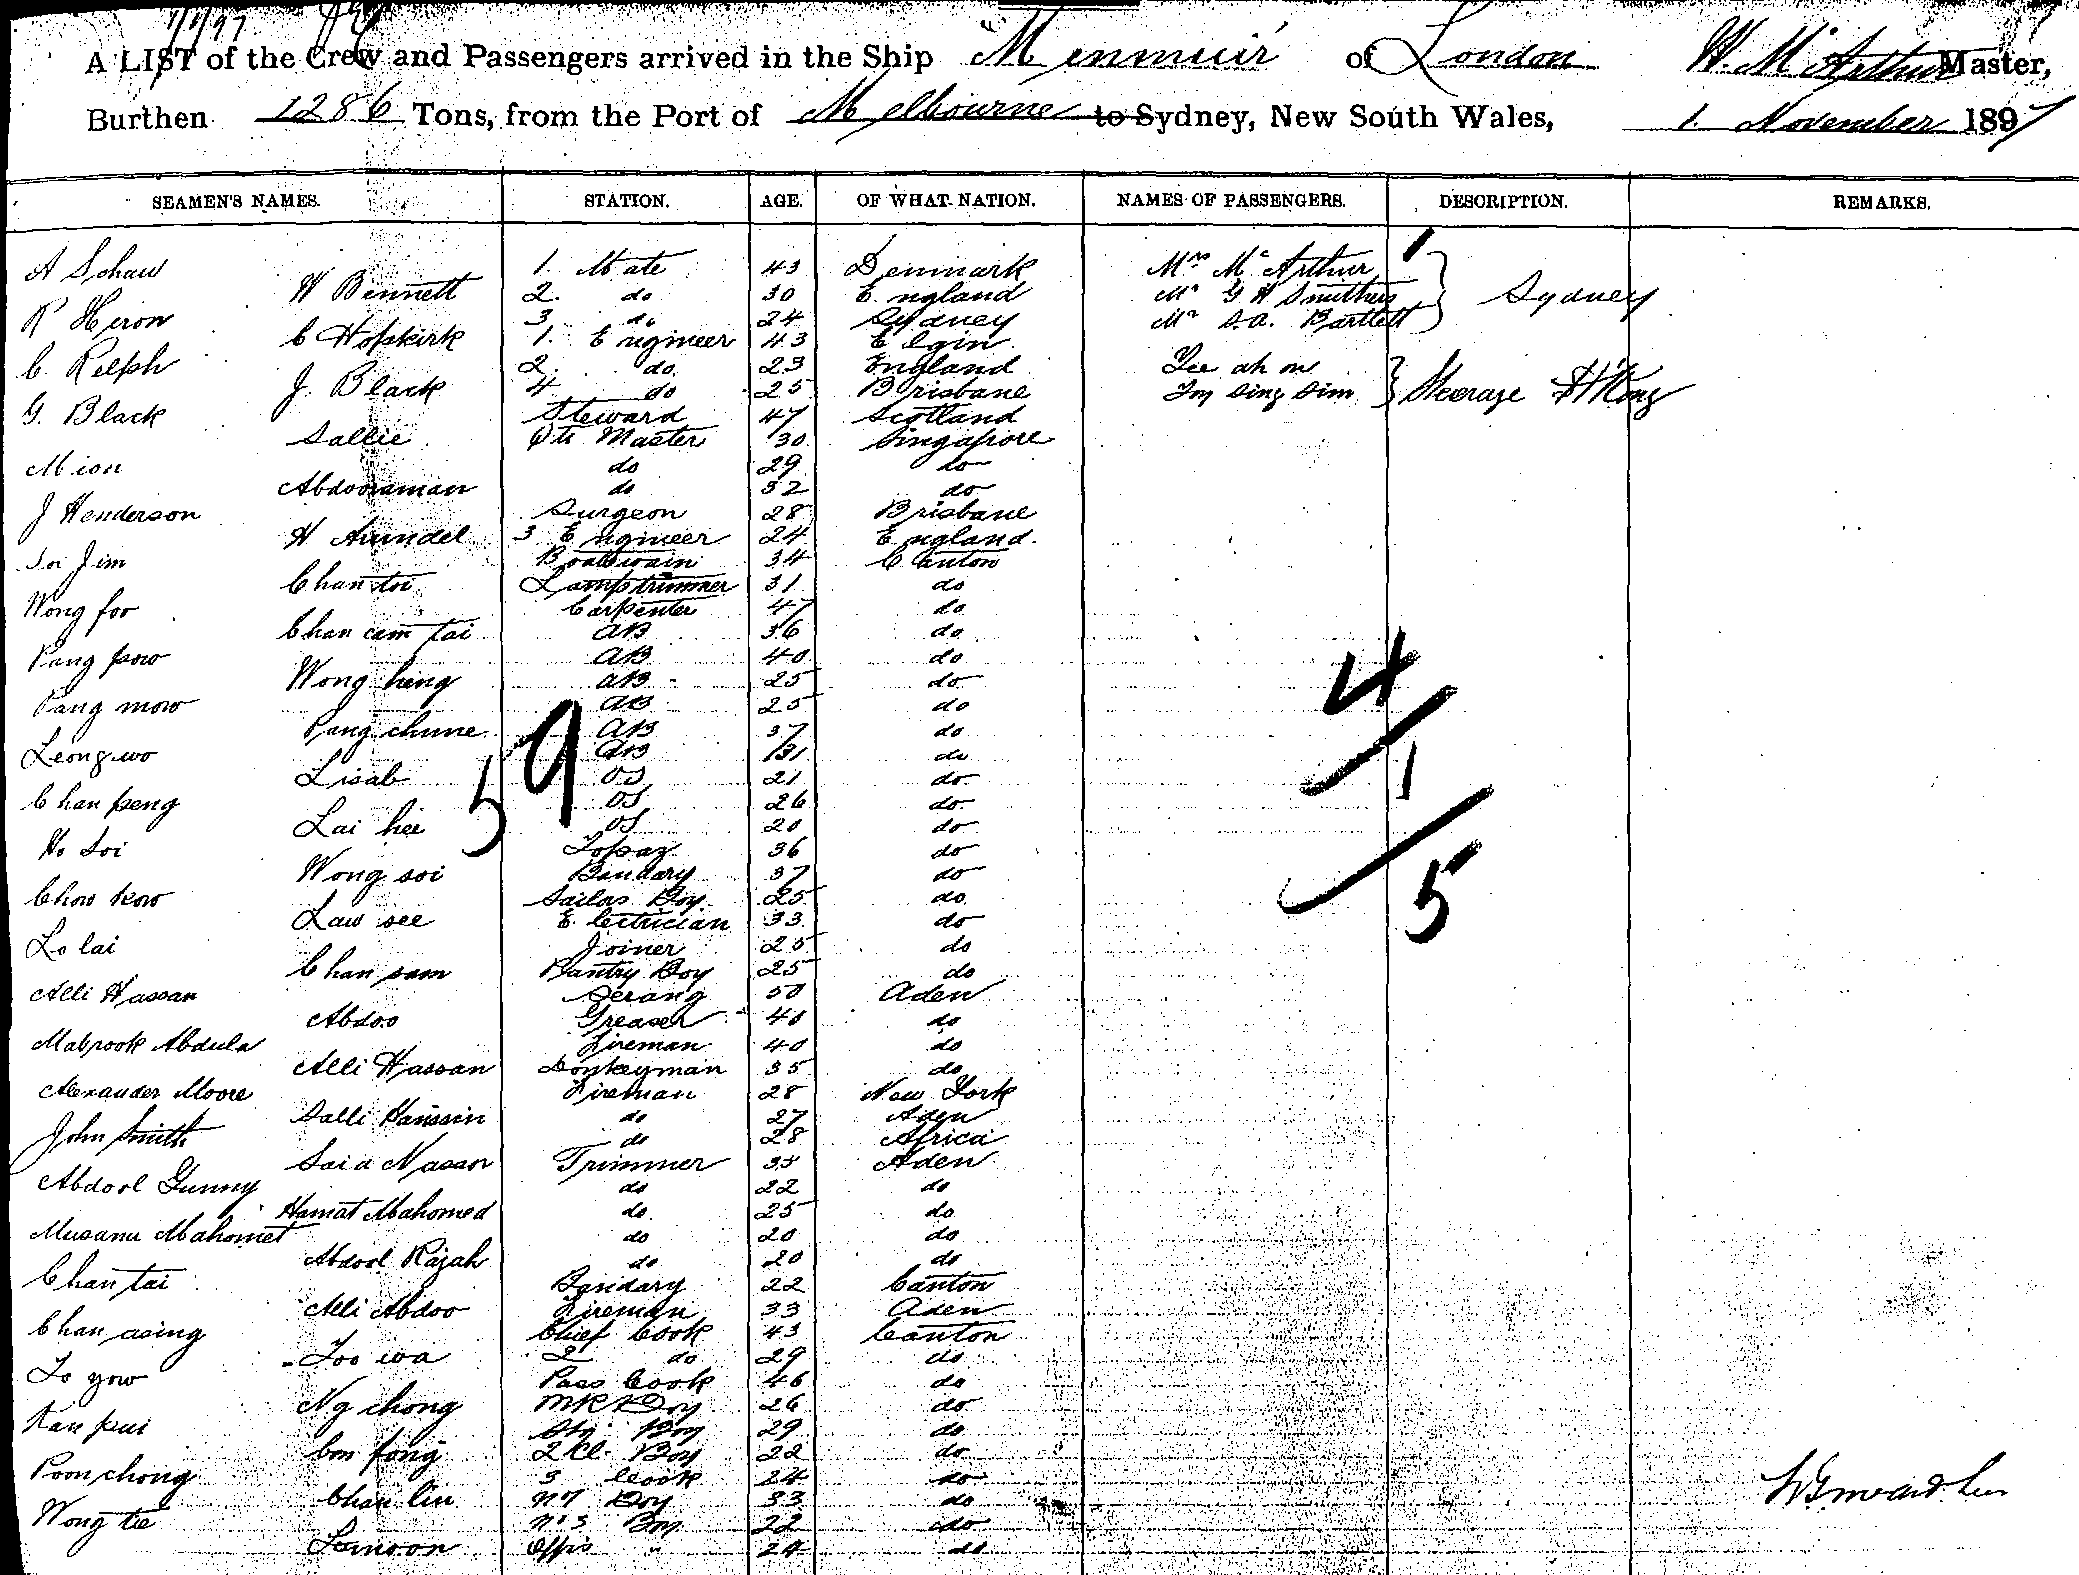 1/11/97
A LIST of the Crew and Passengers arrived in the Ship "Menmuir" of London W. McArthur Master,
Burthen 1286 Tons, from the Port of Melbourne to Sydney, New South Wales, 1. November 1897
SEAMEN'S NAMES. STATION. AGE. OF WHAT NATION. NAMES OF PASSENGERS. DESCRIPTION. REMARKS.
A Schaw 1. Mate 43 Denmark Mrs McArthur
W Bennett 2. do 30 England Mr G H Smithers Sydney
R Hiron 3. do 24 Sydney Mr S. A. Bartlett
C Hopkirk 1. Engineer 43 Elgin
C. Relph 2. do. 23 England Yee ah on
J. Black 4 do 25 Brisbane Sing Sim Steerage H'Kong
G. Black Steward 47 Scotland
Sallie Qtr Master 30 Singapore
Mion do 29 do
Abdooraman do 32 do
J Henderson Surgeon 28 Brisbane
H Arundel 3 Engineer 24 England.
Soi Jim Boatswain 34 Canton
Chan toi Lamptrimmer 31 do
Wong foo Carpenter 47 do
Chan cam tai AB 36 do
Pang pow AB 40 do
Wong heng AB 25 do
Pang mow AB 25 do
Pang chune AB 37 do
Leong wo AB 31 do
Lisab OS 21 do
Chan peng OS 26 do
Lai hee OS 20 do
Ho Soi Topaz 36 do
Wong soi Bandary 37 do
Chow kow Sailors Boy 25 do
Law see Electrician 33 do
Lo lai Joiner 25 do
Chan sam Pantry Boy 25 do
Alli Hassan Serang 50 Aden
Abdoo Greaser 40 do
Mabrook Abdula Fireman 40 do
Alli Hassan Donkeyman 35 do
Alexander Moore Fireman 28 New York
Salli Hanssin do 27 Aden
John Smith do 28 Africa
Said Nassor Trimmer 35 Aden
Abdool Gunny do 22 do
Hamat Mahomed do 25 do
Musanu Mahomet do 20 do
Abdool Rajah do 20 do
Chan tai Bandary 22 Canton
Alli Abdoo Fireman 33 Aden
Chan asing Chief Cook 43 Canton
Too wa 2 do 29 do
To yow Pass Cook 46 do
Ng chong Boy 26 do
Kan pui Boy 29 do
Con fong 2 Cl. Boy 22 do
Poon chong 3 Cook 24 do
Chan lin No 1 Boy 33 do
Wong tie No 3 Boy 22 do
Samoon Offis " 24 do
59
4
1
5